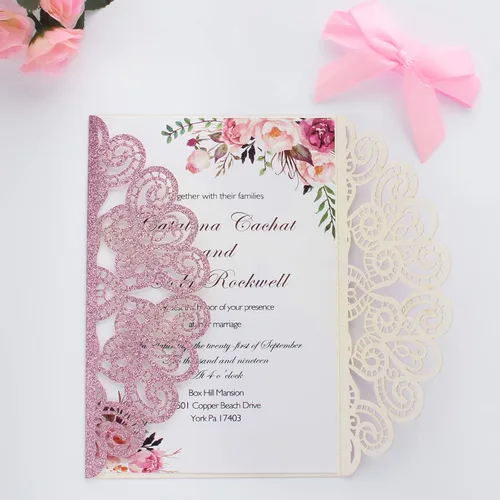 together with their families
Cachat
and
Rockwell
of your presence
at marriage
the twenty-first of September
thousand and nineteen
At 4 o'clock
Box Hill Mansion
Copper Beach Drive
York Pa 17403